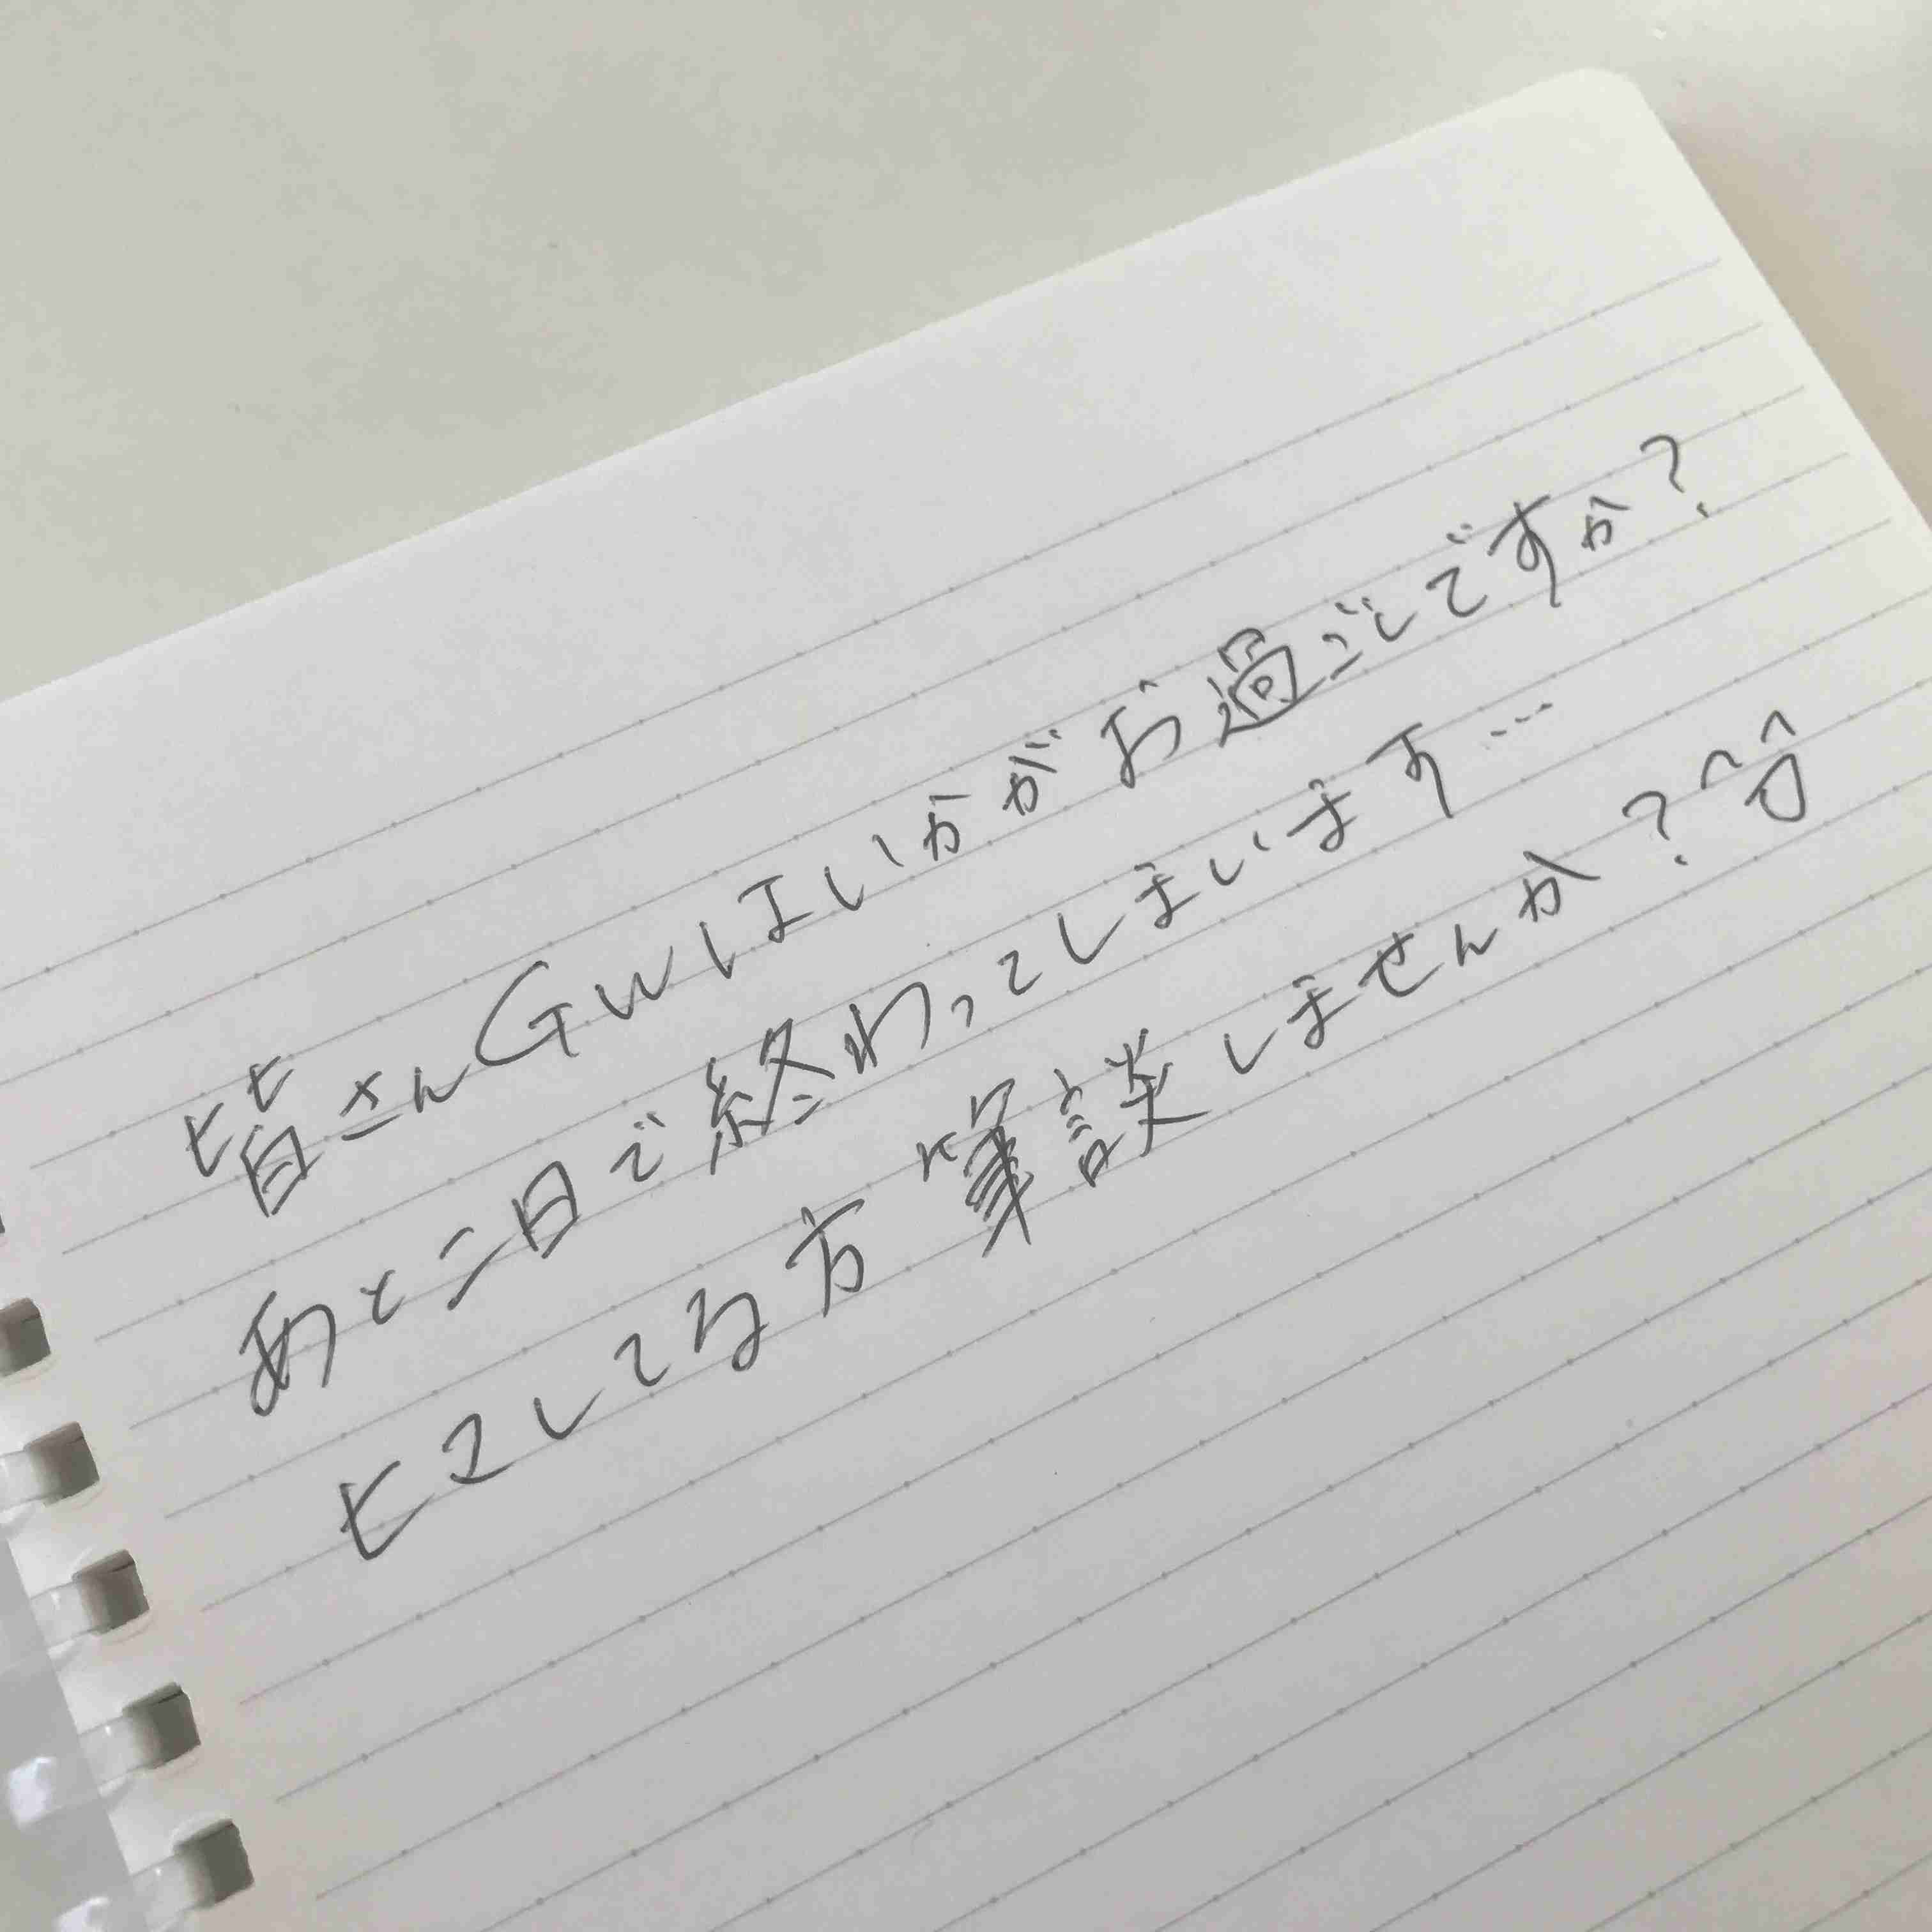 皆さんGWはいかがお過ごしですか?
あと二日で終わってしまいます…
ヒマしてる方筆談しませんか?